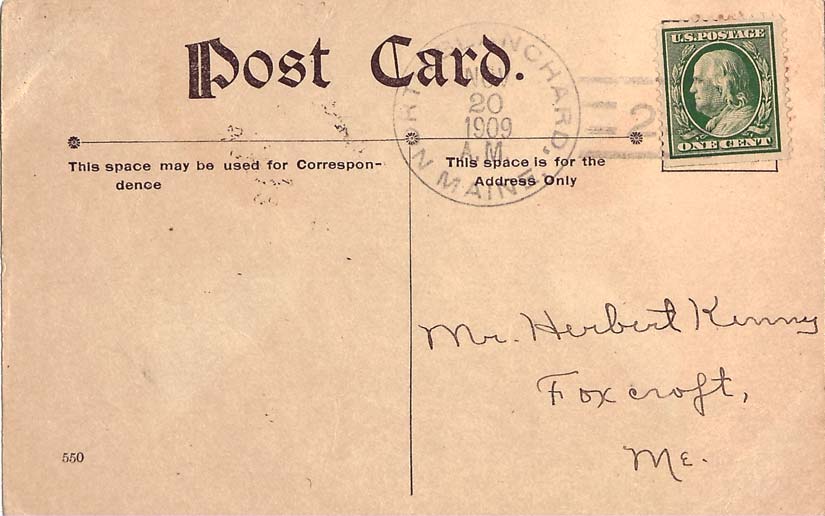 Post Card.
NORTH BLANCHARD, MAINE.
NOV
20
1909
A.M.
2
U.S. POSTAGE
ONE CENT
This space may be used for Correspon-
dence
This space is for the
Address Only
Mr. Herbert Kenny
Foxcroft,
Me.
550